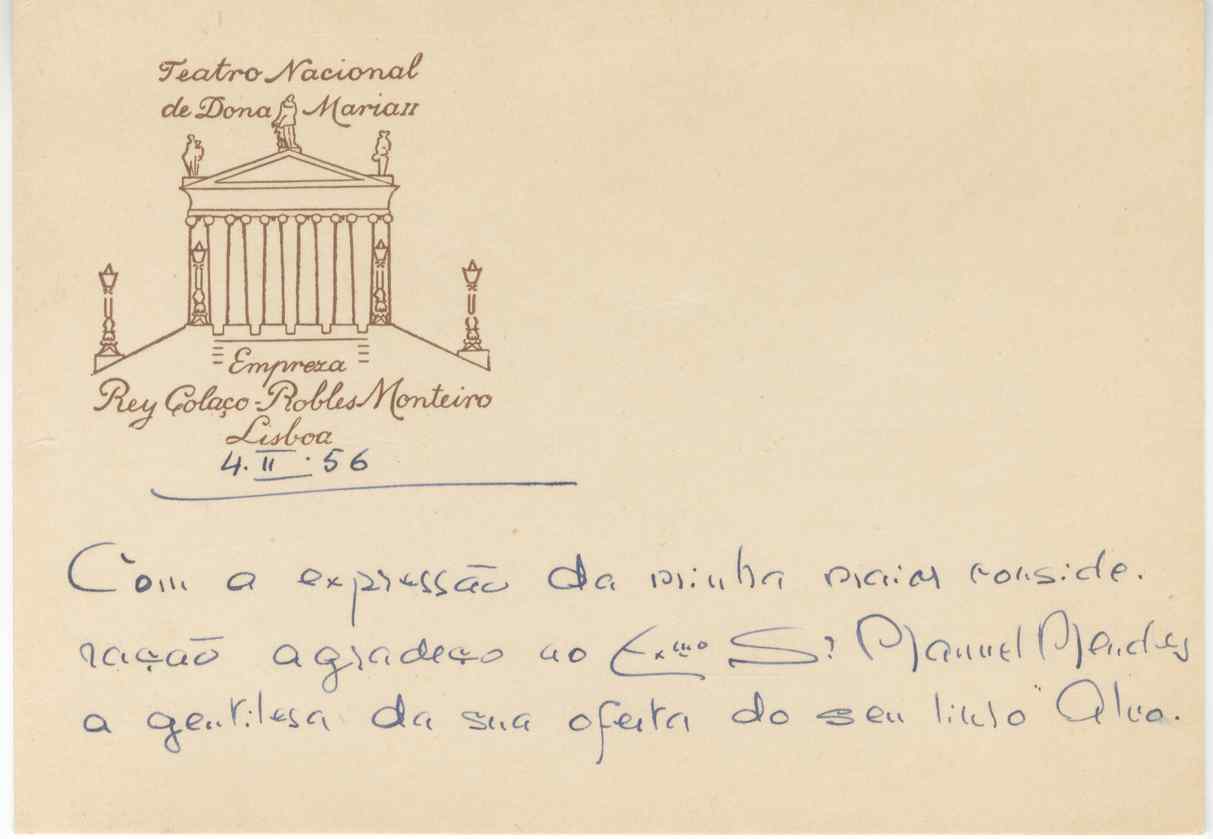 Teatro Nacional
de Dona Maria II
Empreza
Rey Colaço-Robles Monteiro
Lisboa
4.II.56
Com a expressão da minha maior conside.
ração agradeço ao Exmo Sr. Manuel Mendes
a gentilesa da sua oferta do seu livro "Alvo.